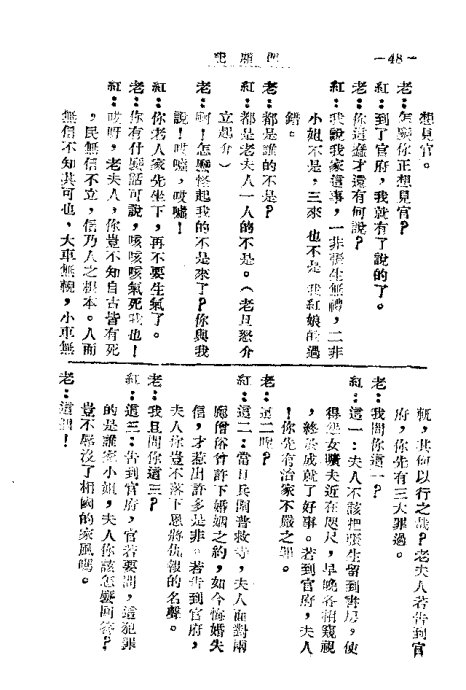 —48—
想見官。
老：怎麼你正想見官？
紅：到了官府，我就有了說的了。
老：你這蠢才還有何說？
紅：我說我家這事，一非張生無禮，二非
小姐不是，三來 也不是 我紅娘的過
錯。
老：都是誰的不是？
紅：都是老夫人一人的不是。（老旦怒介
立起介）
老：啊！怎麼怪起我的不是來了？你與我
說！哎噓，哎噓！
紅：你老人家先坐下，再不要生氣了。
老：你有什麼話可說，咳咳咳氣死我也！
紅：哎呀，老夫人，你豈不知自古皆有死
，民無信不立，信乃人之根本。人而
無信不知其可也，大車無輗，小車無
軏，其何以行之哉？老夫人若告到官
府，你先有三大罪過。
老：我問你這一？
紅：這一：夫人不該把張生留到書房，使
得怨女曠夫近在咫尺，早晚各相窺視
，終於成就了好事。若到官府，夫人
！你先有治家不嚴之罪。
老：這二呢？
紅：這二：當日兵圍普救寺，夫人面對兩
廊僧俗曾許下婚姻之約，如今悔婚失
信，才惹出許多是非。若告到官府，
夫人你豈不落下恩將仇報的名聲。
老：我且問你這三？
紅：這三：告到官府，官若要問，這犯罪
的是誰家小姐，夫人你該怎麼回答？
豈不辱沒了相國的家風嗎。
老：這個！